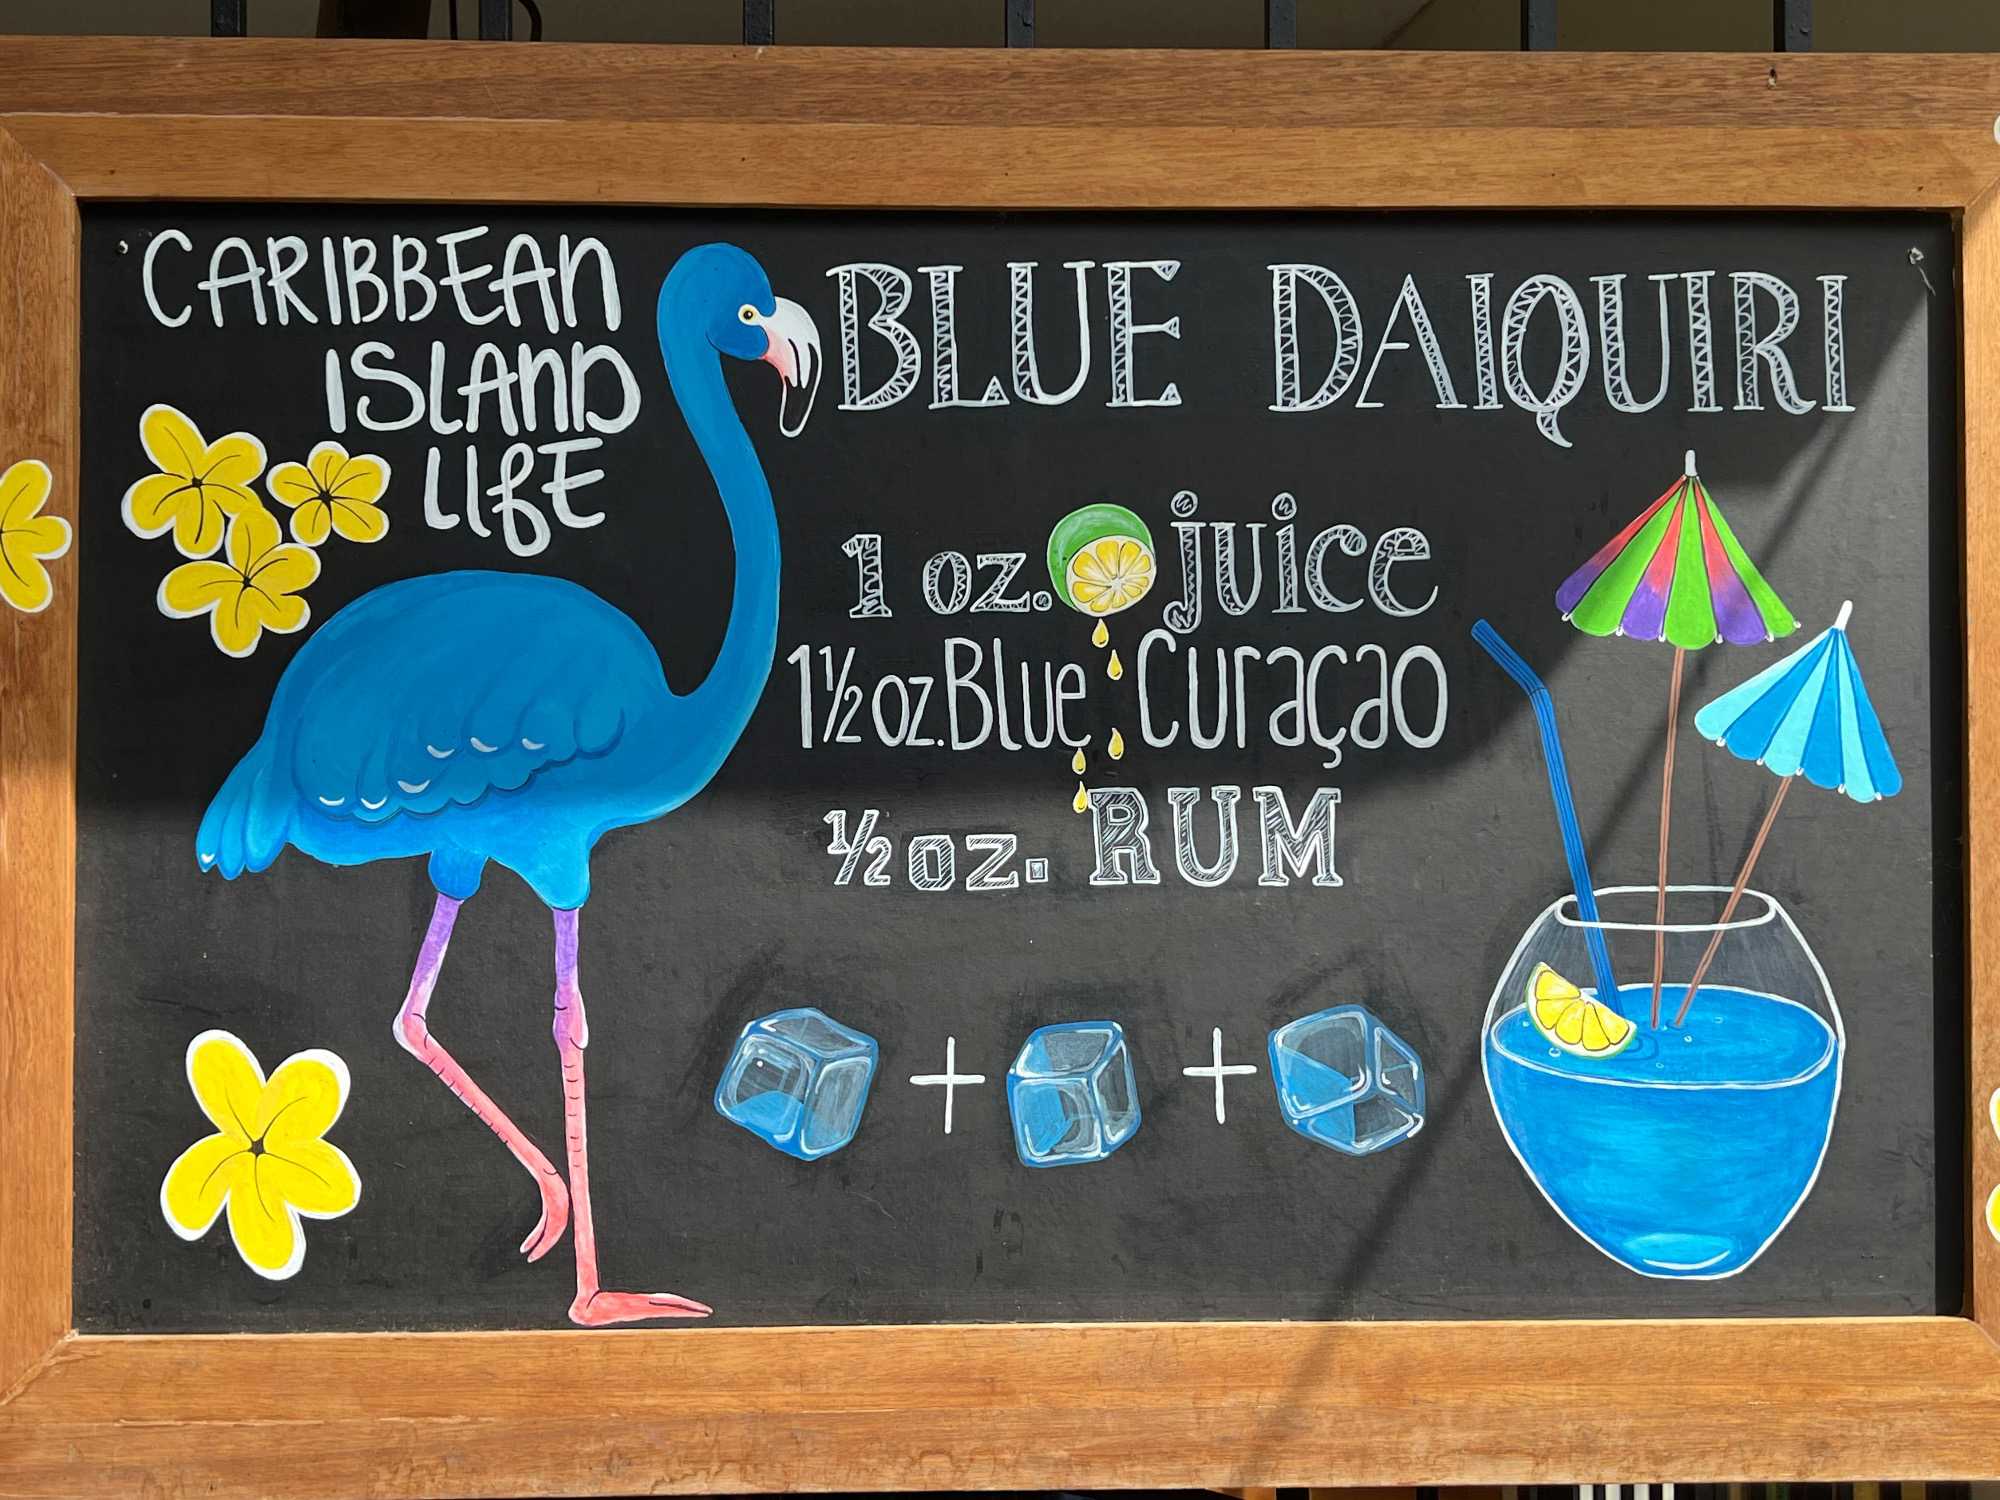 CARIBBEAN
ISLAND
LIfE
BLUE DAIQUIRI
1 oz. juice
1½ oz. Blue Curaçao
½ oz. RUM
+ +